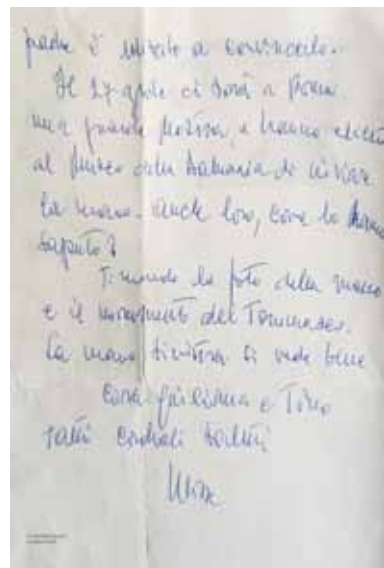 padre è riuscito a convincerlo..
Il 27 aprile ci sarà a Roma
una grande mostra, e hanno chiesto
al Museo della di inviare
la mano. anche loro, come lo hanno
saputo?
Ti mando la foto della mano
e il monumento del Tommaseo.
la mano sinistra si vede bene
Cara Giuliana e Tino
tanti cordiali saluti